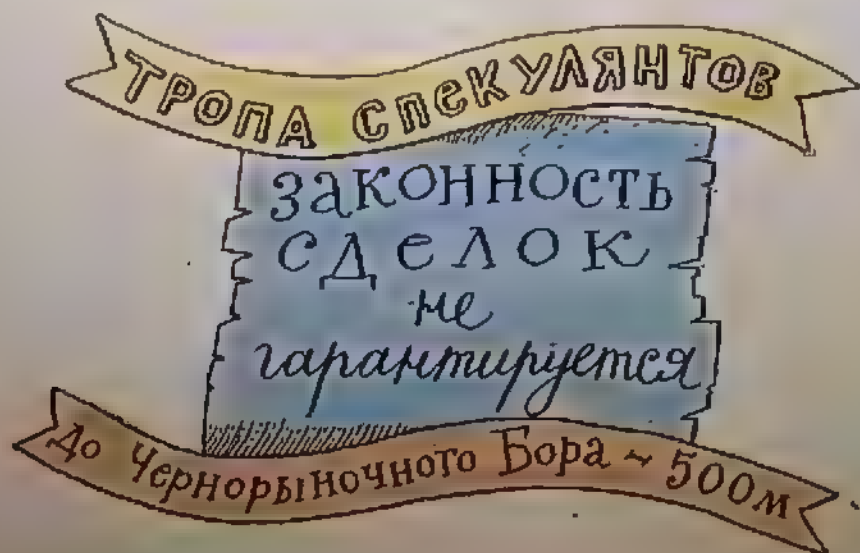 ТРОПА СПЕКУЛЯНТОВ
законность
сделок
не
гарантируется
До Чернорыночного Бора ~ 500м